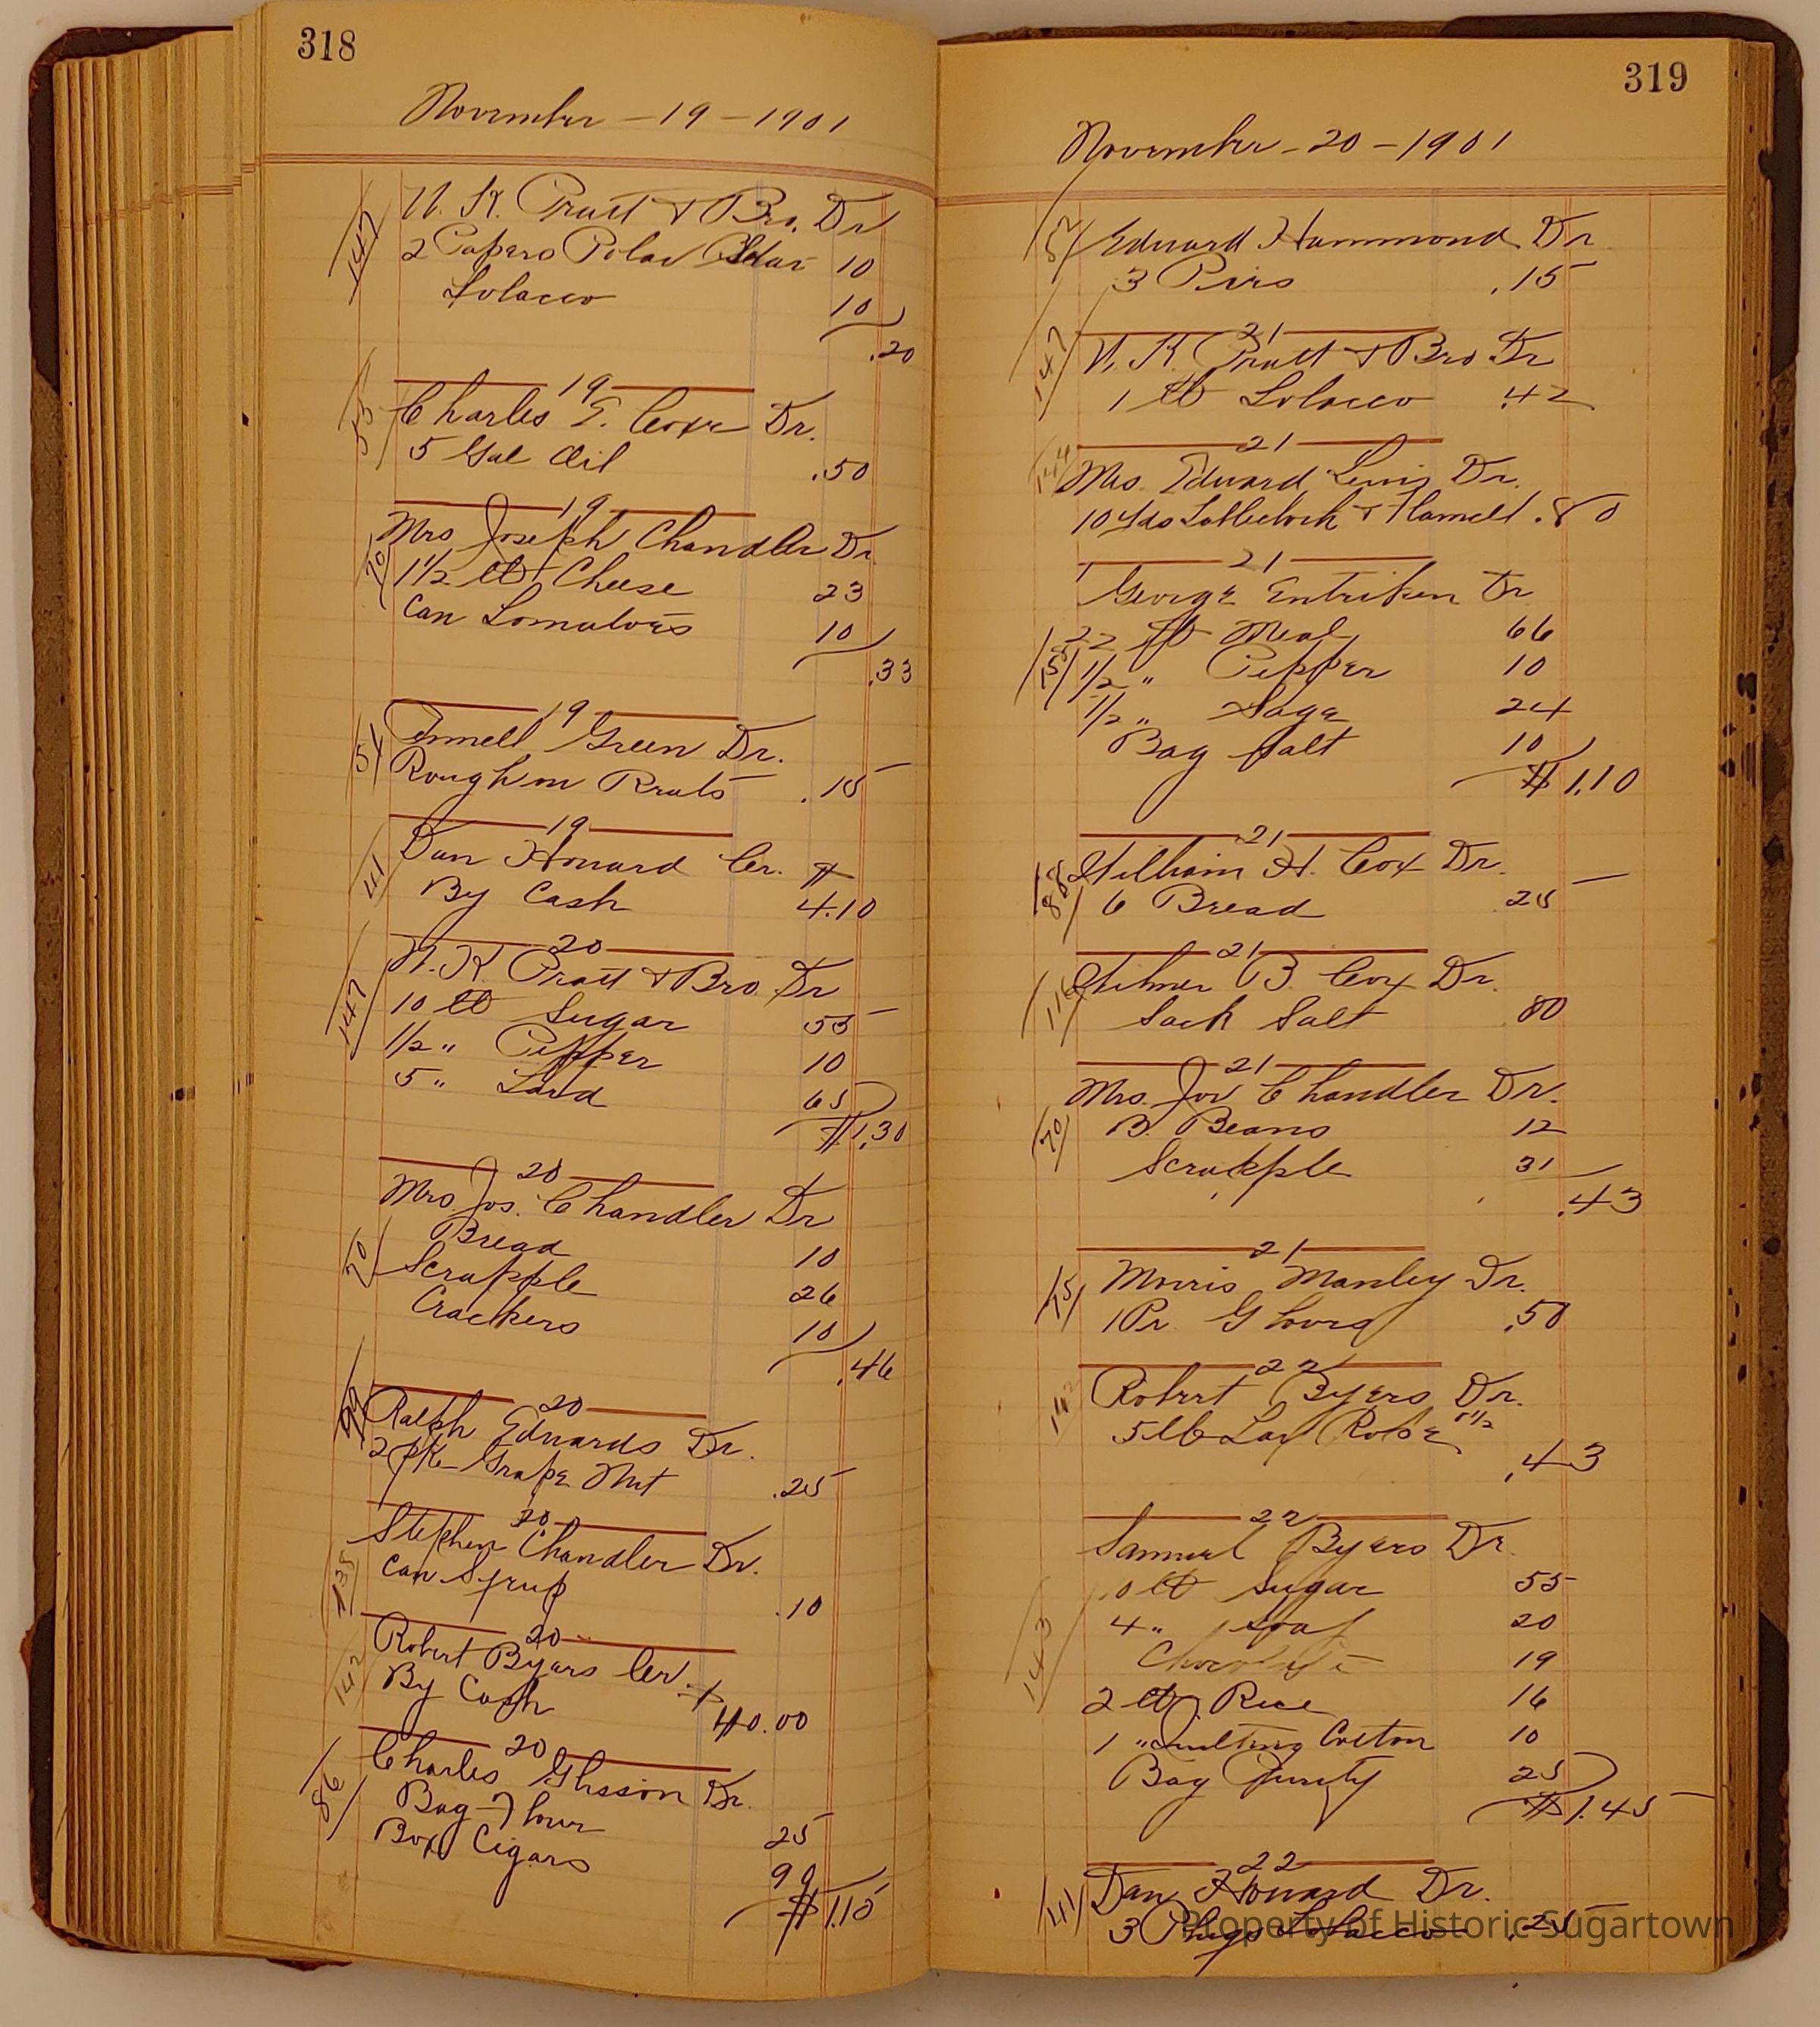 318
November - 19 - 1901
147
W. K. Pratt & Bro. Dr
2 Papers Polar 10
Tobacco 10
.20
19
Charles E. Coxe Dr.
5 Gal Oil .50
19
Mrs Joseph Chandler Dr
70
1 1/2 lb Cheese 23
Can Tomatoes 10
.33
19
Green Dr.
Rough on Rats .15
19
41
Dan Howard Cr. $
By Cash 4.10
20
147
W. K. Pratt & Bro. Dr
10 lb Sugar 55
1/2 " Pepper 10
5 " Lard 65
$1.30
20
Mrs. Jos. Chandler Dr
70
Bread 10
Scrapple 26
Crackers 10
.46
20
Ralph Edwards Dr.
2 pk Grape Nut .25
20
135
Stephen Chandler Dr.
Can Syrup .10
20
142
Robert Byers Cr. $
By Cash 40.00
20
86
Charles Dr.
Bag Flour 25
Box Cigars 90
$1.15
319
November - 20 - 1901
52
Edward Hammond Dr.
3 Pies .15
21
147
W. K. Pratt & Bro Dr
1 lb Tobacco .42
21
144
Mrs. Edward Lewis Dr.
10 Yds & Flannell .80
21
George Entriken Dr
155
22 lb Meal 66
1/2 " Pepper 10
1/2 " Sage 24
Bag Salt 10
$1.10
21
William H. Cox Dr.
6 Bread 25
21
116
Wilmer B. Cox Dr.
Sack Salt 80
21
Mrs. Jos Chandler Dr.
70
B. Beans 12
Scrapple 31
.43
21
Morris Manley Dr.
1 Pr. Gloves .50
22
142
Robert Byers Dr.
5 lb Rope 8 1/2
.43
22
Samuel Byers Dr.
10 lb Sugar 55
143
4 " Soap 20
Chocolate 19
2 lb Rice 16
1 " Quilting Cotton 10
Bag Purity 25
$1.45
22
41
Dan Howard Dr.
3 Plugs Tobacco .25
Property of Historic Sugartown